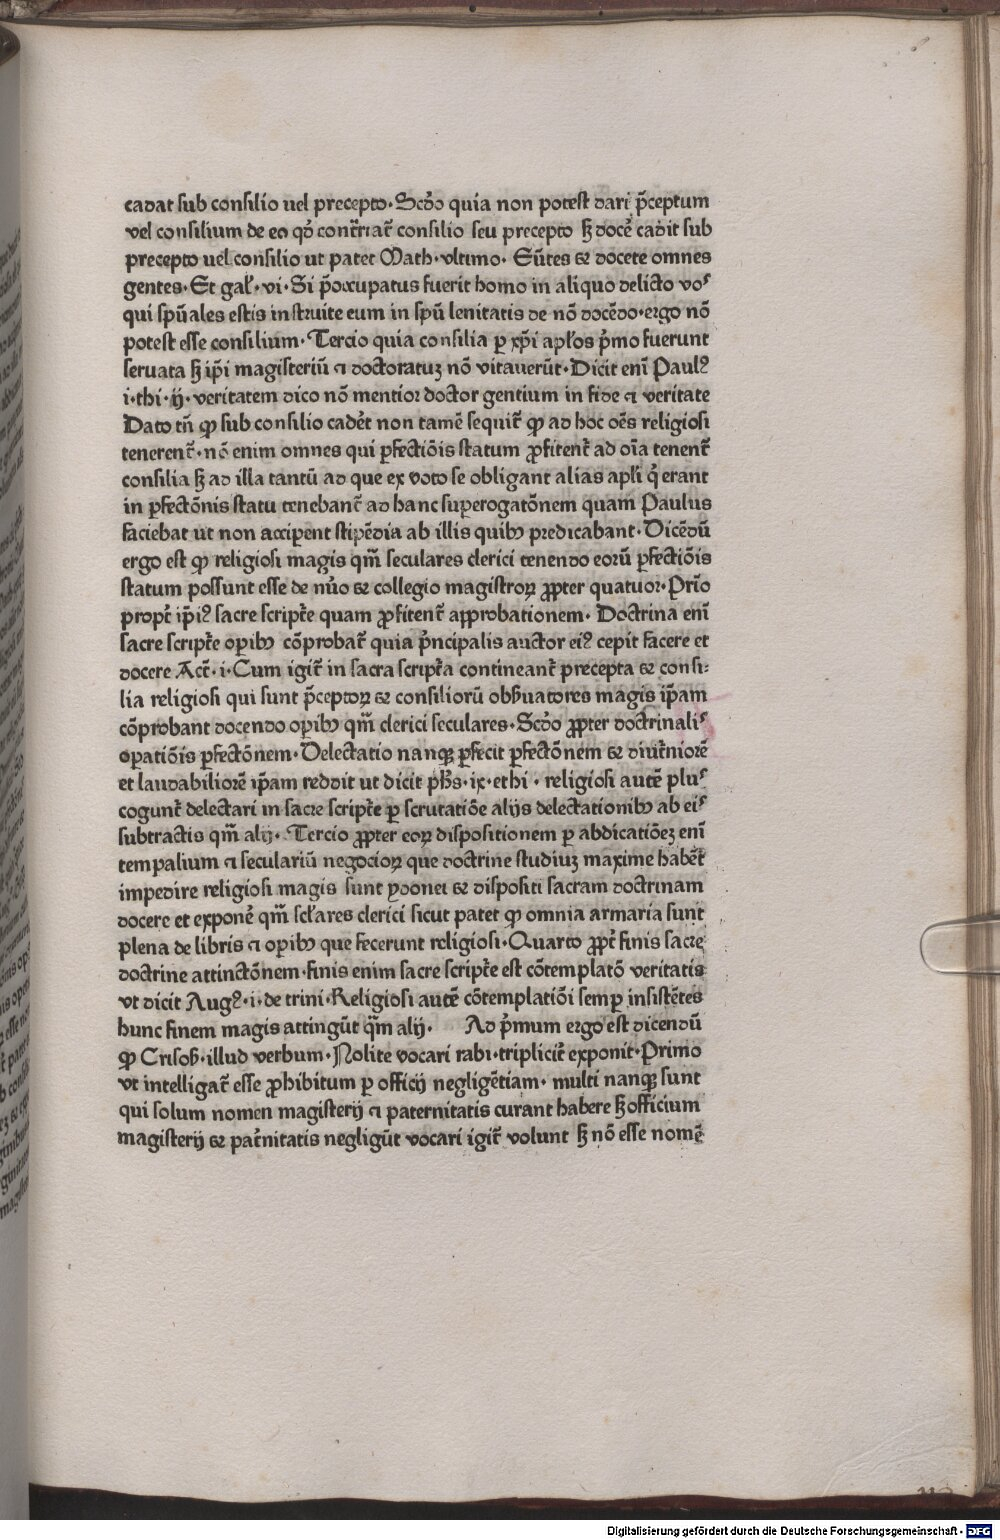 cadat sub consilio uel precepto· Scd̄o quia non potest dari p̄ceptum
vel consilium de eo qd̄ contr̄iat̄ consilio seu precepto sꝫ docē cadit sub
precepto uel consilio ut patet Math·vltimo· Eūtes ⁊ docete omnes
gentes· Et gal̄·vi· Si p̄occupatus fuerit homo in aliquo delicto voˢ
qui sp̄uales estis instruite eum in sp̄u lenitatis de nō docēdo·ergo nō
potest esse consilium· Tercio quia consilia ꝑ xp̄i apl̄os p̄mo fuerunt
seruata sꝫ ip̄i magisteriū ⁊ doctoratuꝫ nō vitauerūt· Dicit eni̅ Paulꝰ
i·thi·ij· veritatem dico nō mentior doctor gentium in fide ⁊ veritate
Dato tn̄ ꝙ sub consilio cadēt non tamē sequit̄ ꝙ ad hoc oēs religiosi
tenerent̄· nō enim omnes qui ꝑfectiōis statum ꝓfitent̄ ad oīa tenent̄
consilia sꝫ ad illa tantū ad que ex voto se obligant alias apl̄i q̄ erant
in ꝑfectōnis statu tenebant̄ ad hanc suꝑerogatōnem quam Paulus
faciebat ut non acciꝑent stipēdia ab illis quibꝫ predicabant· Dicēdū
ergo est ꝙ religiosi magis qm̄ seculares clerici tenendo eorū ꝑfectiōis
statum possunt esse de nūo ⁊ collegio magistroꝝ ꝓpter quatuor· Prīo
propt̄ ip̄iꝰ sacre script̄e quam ꝓfitent̄ approbationem· Doctrina eni̅
sacre script̄e oꝑibꝫ cōprobat̄ quia p̄ncipalis auctor eiꝰ cepit facere et
docere Act̄·i· Cum igit̄ in sacra script̄a contineant̄ precepta ⁊ consi:
lia religiosi qui sunt p̄ceptoꝝ ⁊ consiliorū obs̄uatores magis ip̄am
cōprobant docendo oꝑibꝫ qm̄ clerici seculares· Scd̄o ꝓpter doctrinaliˢ
oꝑatiōis ꝑfectōnem· Delectatio nanqꝫ ꝑfecit ꝑfectōnem ⁊ diut̄niorē
et laudabiliorē ip̄am reddit ut dicit ph̄s·ix·ethi· religiosi autē pluˢ
cogunt̄ delectari in sacre script̄e ꝑ scrutatiōe alijs delectationibꝫ ab eiˢ
subtractis qm̄ alij· Tercio ꝓpter eoꝝ dispositionem ꝑ abdicatiōeꝫ eni̅
temꝑalium ⁊ seculariū negocioꝝ que doctrine studiuꝫ maxime habēt
impedire religiosi magis sunt ydonei ⁊ dispositi sacram doctrinam
docere et exponē qm̄ scl̄ares clerici sicut patet ꝙ omnia armaria sunt
plena de libris ⁊ oꝑibꝫ que fecerunt religiosi· Quarto ꝓpt̄ finis sacre
doctrine attinctōnem·finis enim sacre script̄e est cōtemplatō veritatis
vt dicit Augꝰ·i·de trini·Religiosi autē cōtemplatiōi semꝑ insistētes
hunc finem magis attingūt qm̄ alij· Ad p̄mum ergo est dicendū
ꝙ Crisoſt̄·illud verbum·Nolite vocari rabi·triplicit̄ exponit·Primo
vt intelligat̄ esse ꝓhibitum ꝑ officij negligētiam· multi nanqꝫ sunt
qui solum nomen magisterij ⁊ paternitatis curant habere sꝫ officium
magisterij ⁊ pat̄nitatis negligūt vocari igit̄ volunt sꝫ nō esse nomē
Digitalisierung gefördert durch die Deutsche Forschungsgemeinschaft - DFG